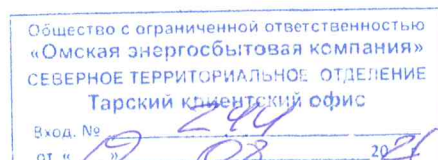 Общество с ограниченной ответственностью
«Омская энергосбытовая компания»
СЕВЕРНОЕ ТЕРРИТОРИАЛЬНОЕ ОТДЕЛЕНИЕ
Тарский клиентский офис
Вход. № 244
от « » 08 20